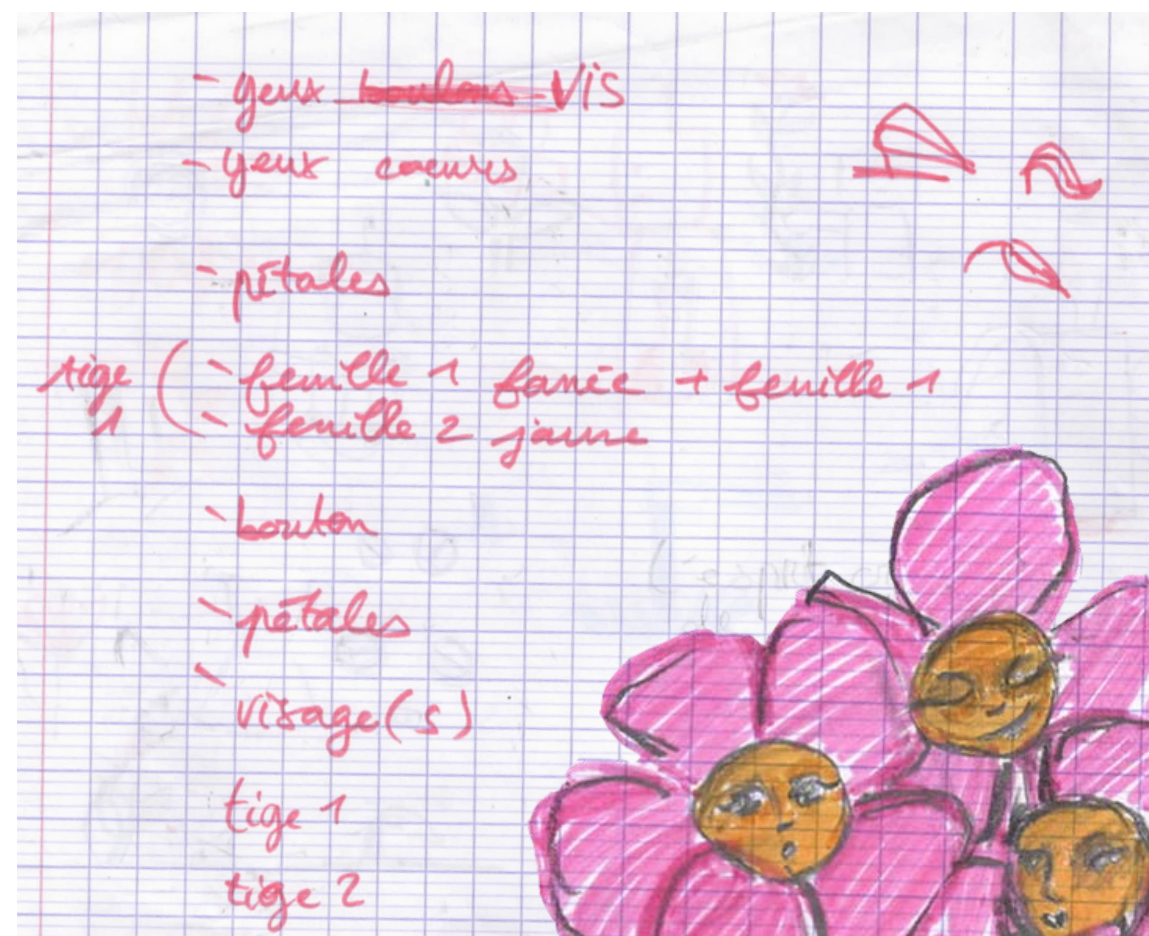 - yeux boulons VIS
- yeux coeurs
- pétales
tige 1 ( - feuille 1 fanée + feuille 1
- feuille 2 jaune
- bouton
- pétales
- visage(s)
tige 1
tige 2